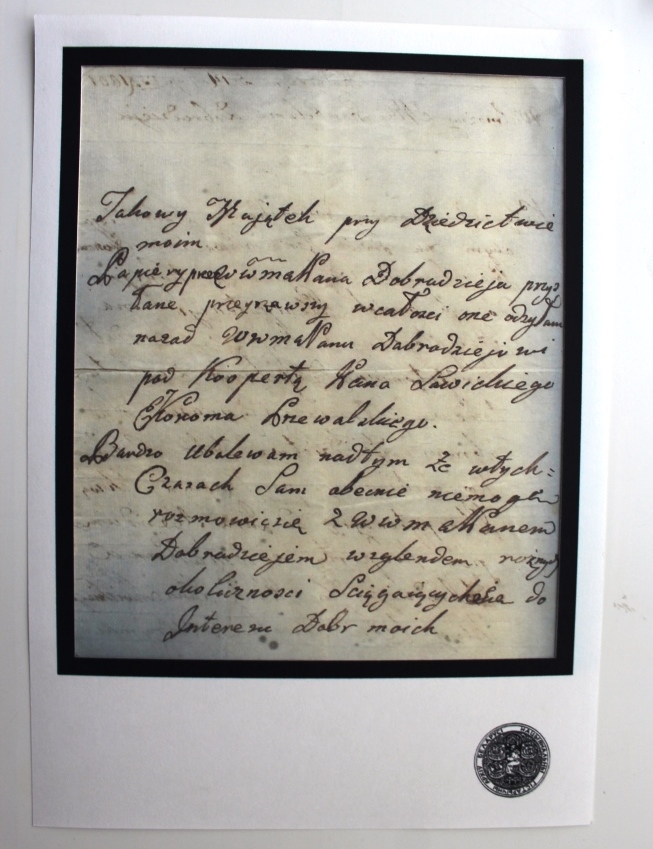 Takowy Majątek przy Dziedzictwie
moim
Papiery przez WWmPana Dobrodzieja przys
łane przeyrzawszy wcałości one odzyłam
nazad WWmPanu Dobrodziejowi
pod Koopertą Pana Sawickiego
Ekonoma
Bardzo Ubolewam nadtym Że wtych=
Czasach Sam obecnie niemogłem
rozmowićsię z WWmPanem
Dobrodziejem wzglendem rożnych
okoliznosci Sciągaiącychsie do
Interesu Dobr moich